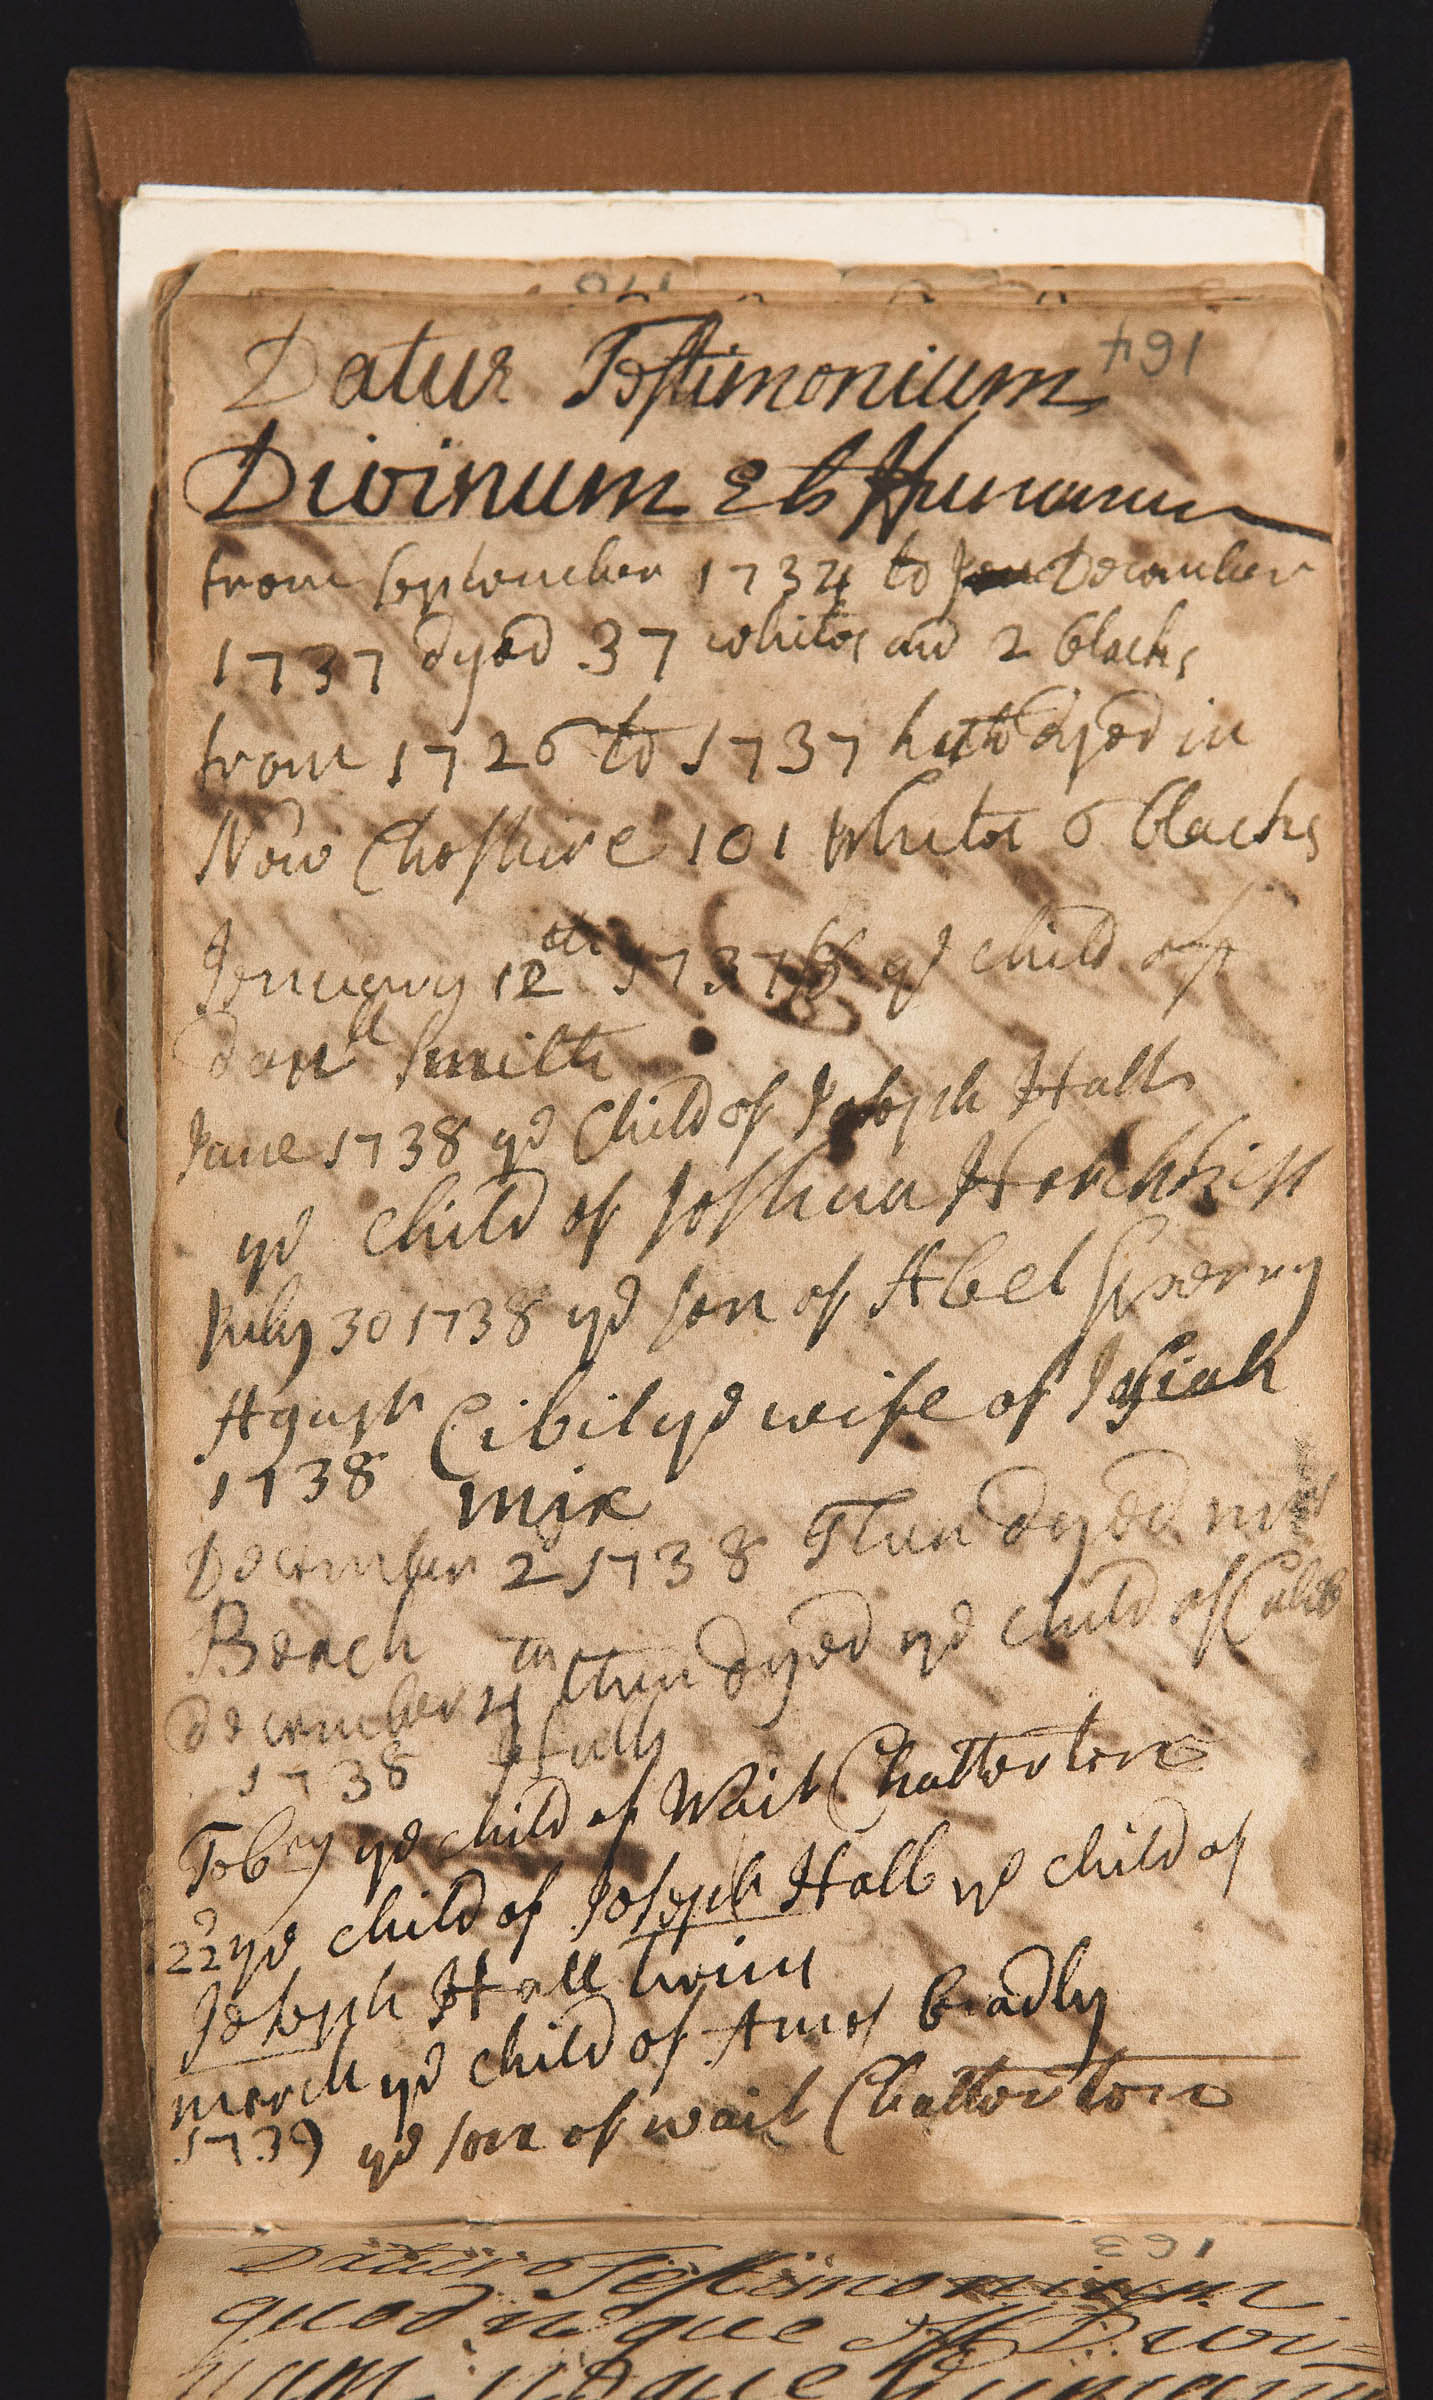 164
Datur Testimonium
Divinum Et Humanum
from september 1734 to December
1737 dyed 37 whites and 2 blacks
from 1726 to 1737 hath dyed in
New Cheshire 101 whites 6 blacks
Jenuary 12th 1737/8 ye child of
danll smith
June 1738 ye Child of Joseph Hall
ye child of Joshua Hotchkiss
July 30 1738 ye son of Abel Sperry
Agust Cibil ye wife of Josiah
1738 mix
December 2 1738 Then dyed
Beach
december 4th then dyed ye child of Caleb
1738
Tobey ye child of Wait Chatterton
22d ye child of Joseph Hall ye child of
Joseph Hall twins
march ye child of Amos bradly
1739 ye son of wait Chatterton
163
Datur Testimonium
quod neque est Divi=
num neque humanum